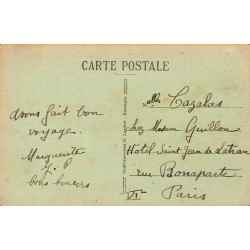 CARTE POSTALE
avons fait bon
voyage.
Marguerite
bons baisers
Mlle Cazalas
chez Madame Guillou
Hôtel Saint Jean de Latran
rue Bonaparte
VIe
Paris